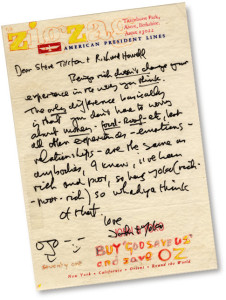 zigzag
Tittenhurst Park,
Ascot, Berkshire.
Ascot 23022
AMERICAN PRESIDENT LINES
Dear Steve Tilston & Richard Howell
Being rich doesn't change your
experience in the way you think.
The only difference basically
is that you don't have to worry
about money - food - roof - etc. but
all other experiences - emotions -
relationships - are the same as
anybodies, I know, i've been
rich and poor, so has yoko (rich-
poor-rich) so whadya think
of that. love
John + Yoko
BUY 'GOD SAVE US'
and save OZ
New York • California • Orient • Round the World